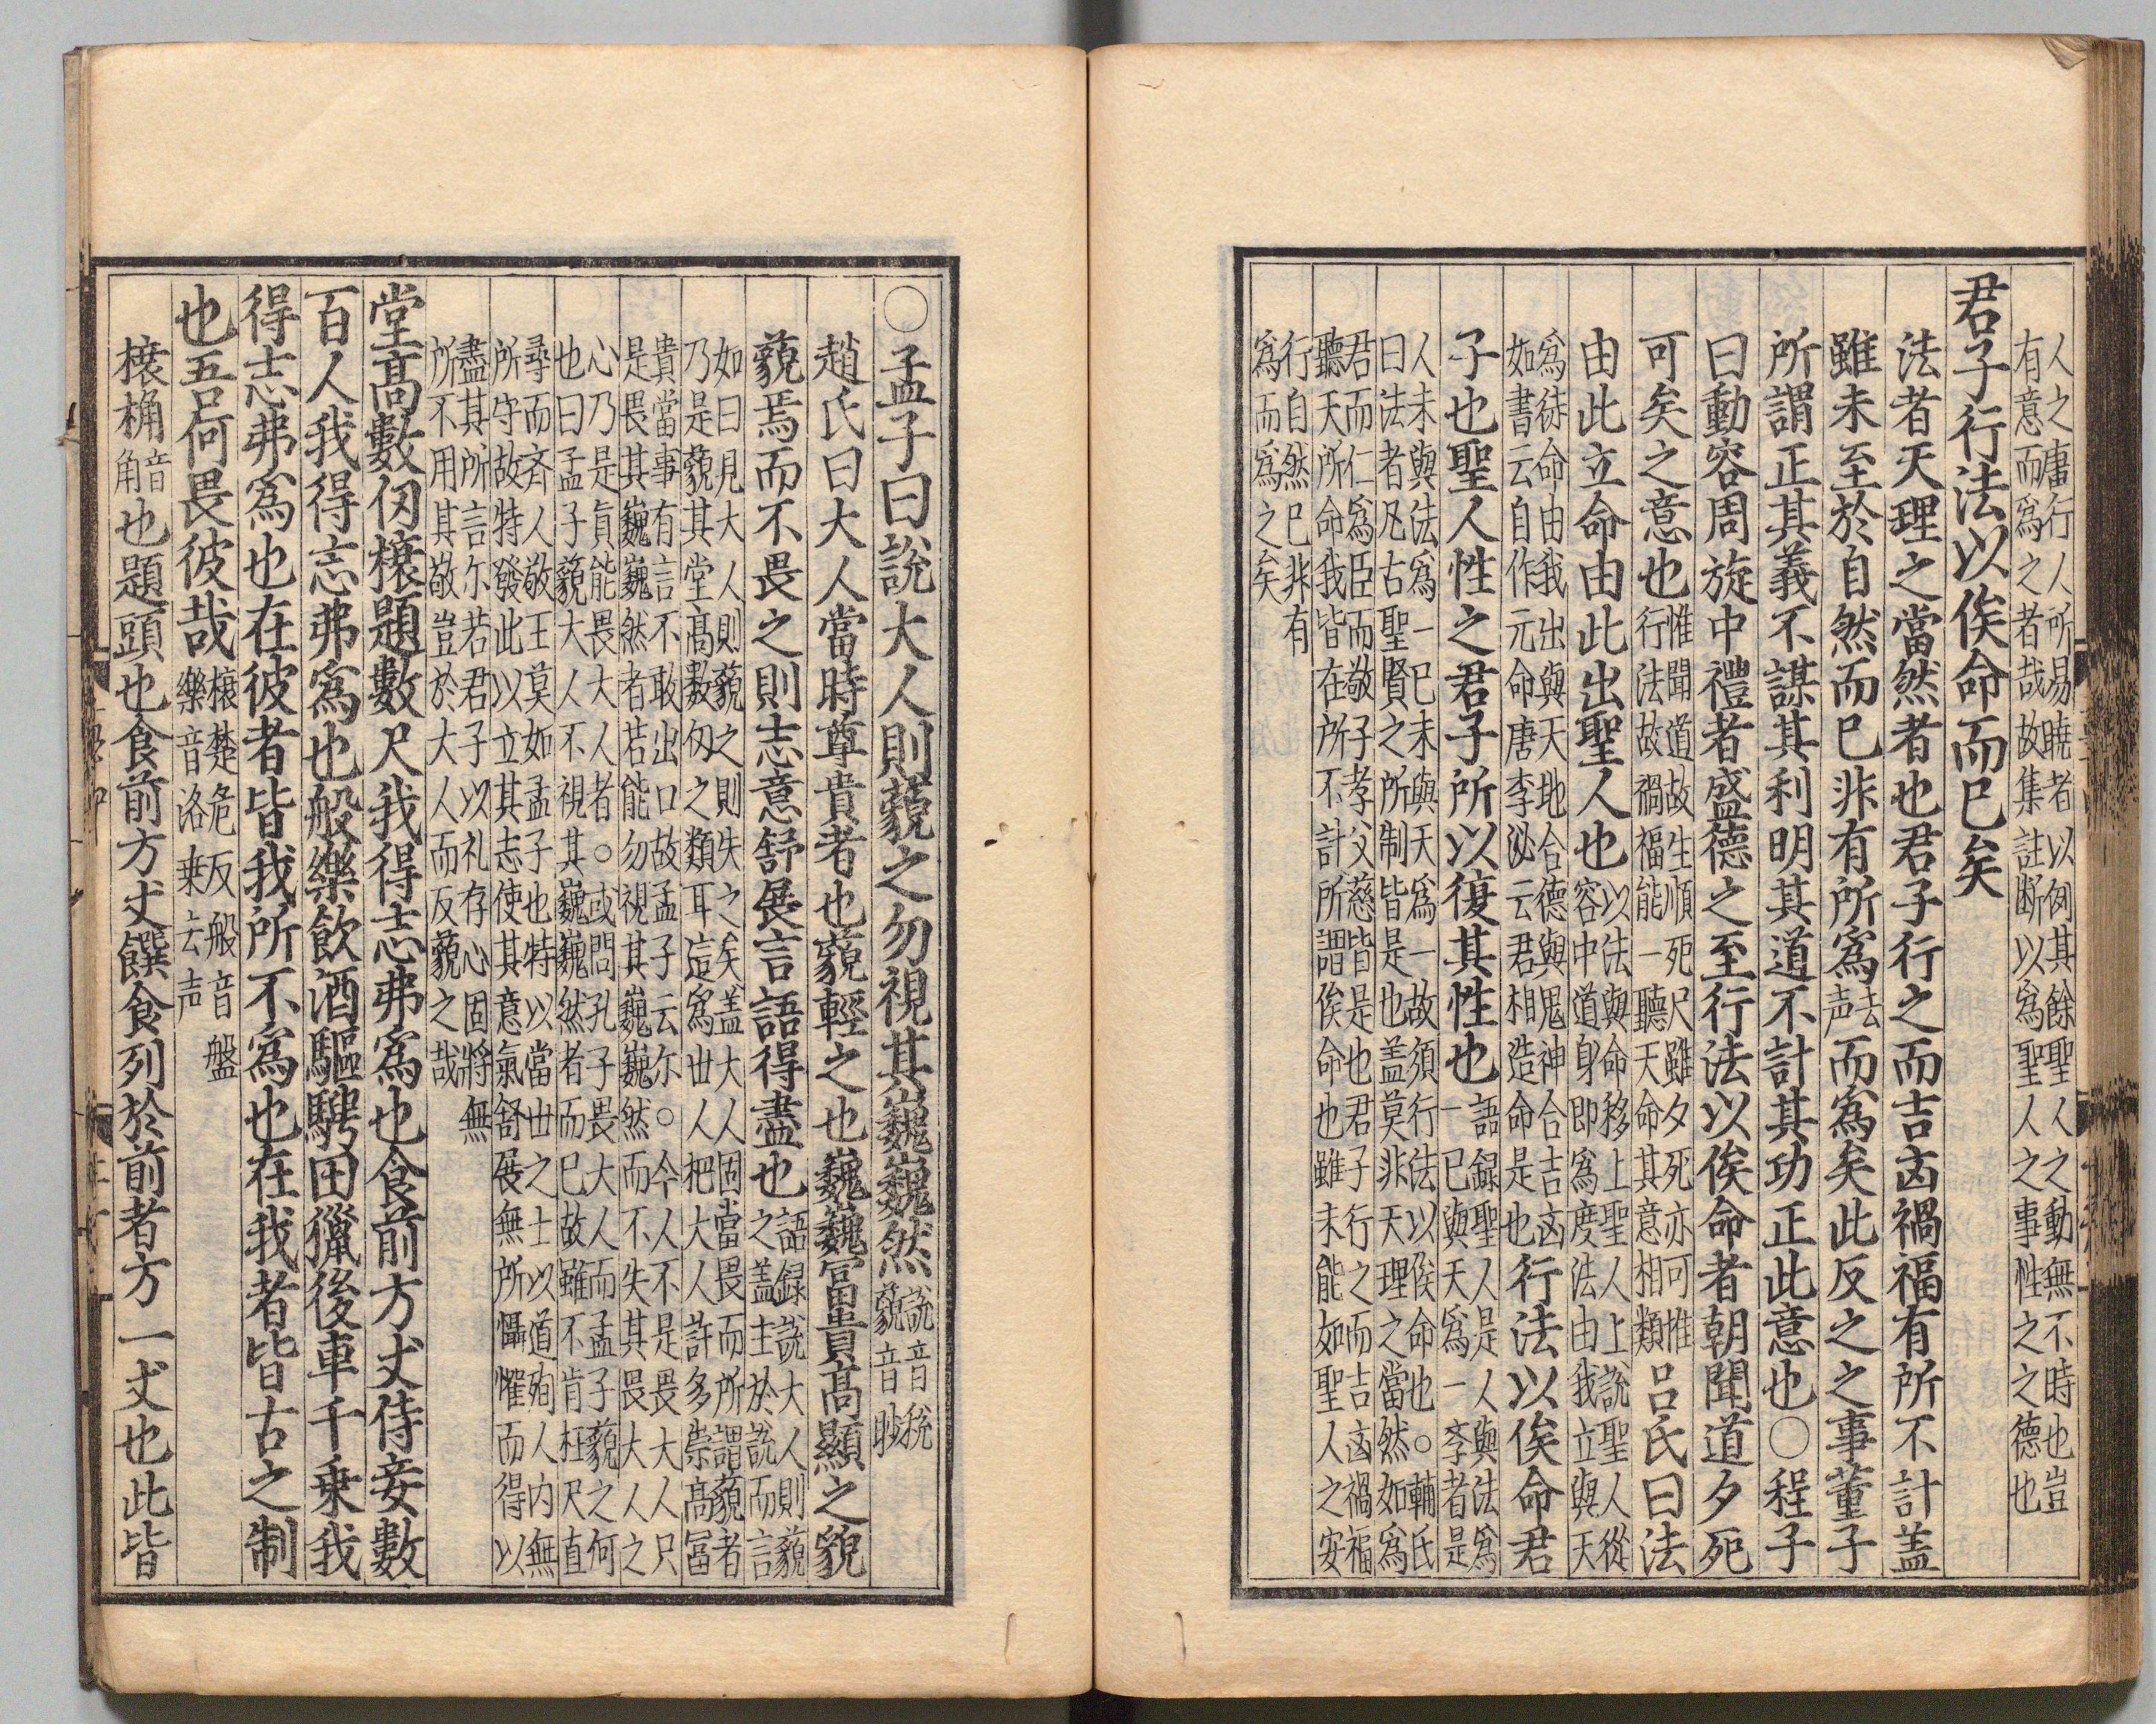 人之庸行人所易曉者以例其餘聖人之動無不時也豈
有意而爲之者哉故集註断以爲聖人之事性之之德也
君子行法以俟命而已矣
法者天理之當然者也君子行之而吉凶禍福有所不計盖
雖未至於自然而已非有所爲去声而爲矣此反之之事董子
所謂正其義不謀其利明其道不計其功正此意也○程子
曰動容周旋中禮者盛德之至行法以俟命者朝聞道夕死
可矣之意也惟聞道故生順死尺雖夕死亦可惟
行法故禍福能一聽天命其意相類呂氏曰法
由此立命由此出聖人也以法與命移上聖人上說聖人從
容中道身即爲度法由我立與天
爲徒命由我出與天地合德與鬼神合吉凶
如書云自作元命唐李泌云君相造命是也行法以俟命君
子也聖人性之君子所以復其性也語録聖人是人與法爲
一已與天爲一李者是
人未與法爲一已未與天爲一故須行法以俟命也○輔氏
曰法者凡古聖賢之所制皆是也盖莫非天理之當然如爲
君而仁爲臣而敬子孝父慈皆是也君子行之而吉凶禍福
聽天所命我皆在所不計所謂俟命也雖未能如聖人之安
行自然已非有
爲而爲之矣
○孟子曰說大人則藐之勿視其巍巍然說音稅
藐音眇
趙氏曰大人當時尊貴者也藐輕之也巍巍富貴高顯之貌
藐焉而不畏之則志意舒展言語得盡也語録說大人則藐
之盖主於說而言
如曰見大人則藐之則失之矣盖大人固當畏而所謂藐者
乃是藐其堂高數仞之類耳這爲世人把大人許多崇高富
貴當事有言不敢出口故孟子云尓○今人不是畏大人只
是畏其巍巍然者若能勿視其巍巍然而不失其畏大人之
心乃是眞能畏大人者○或問孔子畏大人而孟子藐之何
也曰孟子藐大人不視其巍巍然者而已故雖不肯枉尺直
尋而齊人敬王莫如孟子也特以當世之士以道殉人内無
所守故特發此以立其志使其意氣舒展無所懾懼而得以
盡其所言尓若君子以礼存心固將無
所不用其敬豈於大人而反藐之哉
堂高數仞榱題數尺我得志弗爲也食前方丈侍妾數
百人我得志弗爲也般樂飮酒驅騁田獵後車千乗我
得志弗爲也在彼者皆我所不爲也在我者皆古之制
也吾何畏彼哉榱楚危反般音盤
樂音洛乗去声
榱桷音角也題頭也食前方丈饌食列於前者方一丈也此皆